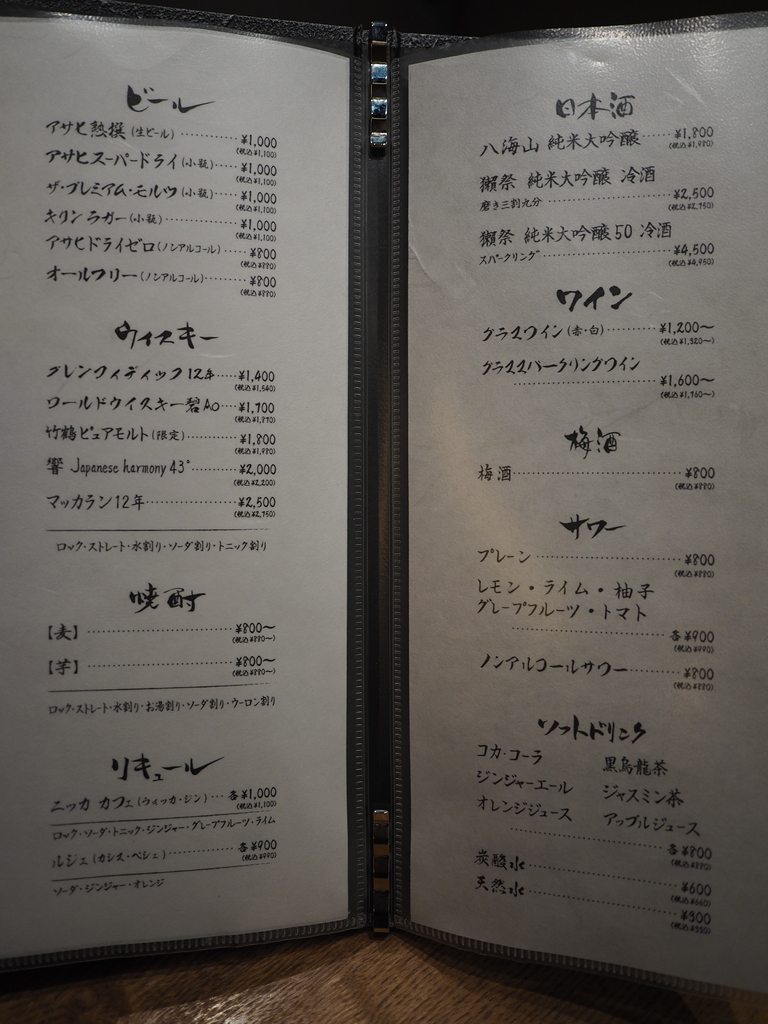 ビール
アサヒ熟撰(生ビール) ¥1,000
(税込¥1,100)
アサヒスーパードライ(小瓶) ¥1,000
(税込¥1,100)
ザ・プレミアム・モルツ(小瓶) ¥1,000
(税込¥1,100)
キリンラガー(小瓶) ¥1,000
(税込¥1,100)
アサヒドライゼロ(ノンアルコール) ¥800
(税込¥880)
オールフリー(ノンアルコール) ¥800
(税込¥880)
ウィスキー
グレンフィディック12年 ¥1,400
(税込¥1,540)
ワールドウイスキー碧Ao ¥1,700
(税込¥1,870)
竹鶴ピュアモルト(限定) ¥1,800
(税込¥1,980)
響 Japanese harmony 43° ¥2,000
(税込¥2,200)
マッカラン12年 ¥2,500
(税込¥2,750)
ロック・ストレート・水割り・ソーダ割り・トニック割り
焼酎
【麦】 ¥800〜
(税込¥880〜)
【芋】 ¥800〜
(税込¥880〜)
ロック・ストレート・水割り・お湯割り・ソーダ割り・ウーロン割り
リキュール
ニッカ カフェ(ウォッカ・ジン) 各¥1,000
(税込¥1,100)
ロック・ソーダ・トニック・ジンジャー・グレープフルーツ・ライム
ルジェ(カシス・ペシェ) 各¥900
(税込¥990)
ソーダ・ジンジャー・オレンジ
日本酒
八海山 純米大吟醸 ¥1,800
(税込¥1,980)
獺祭 純米大吟醸 冷酒
磨き三割九分 ¥2,500
(税込¥2,750)
獺祭 純米大吟醸50 冷酒
スパークリング ¥4,500
(税込¥4,950)
ワイン
グラスワイン(赤・白) ¥1,200〜
(税込¥1,320〜)
グラススパークリングワイン
¥1,600〜
(税込¥1,760〜)
梅酒
梅酒 ¥800
(税込¥880)
サワー
プレーン ¥800
(税込¥880)
レモン・ライム・柚子
グレープフルーツ・トマト
各¥900
(税込¥990)
ノンアルコールサワー ¥800
(税込¥880)
ソフトドリンク
コカ・コーラ 黒烏龍茶
ジンジャーエール ジャスミン茶
オレンジジュース アップルジュース
各¥800
(税込¥880)
炭酸水 ¥600
(税込¥660)
天然水 ¥300
(税込¥330)